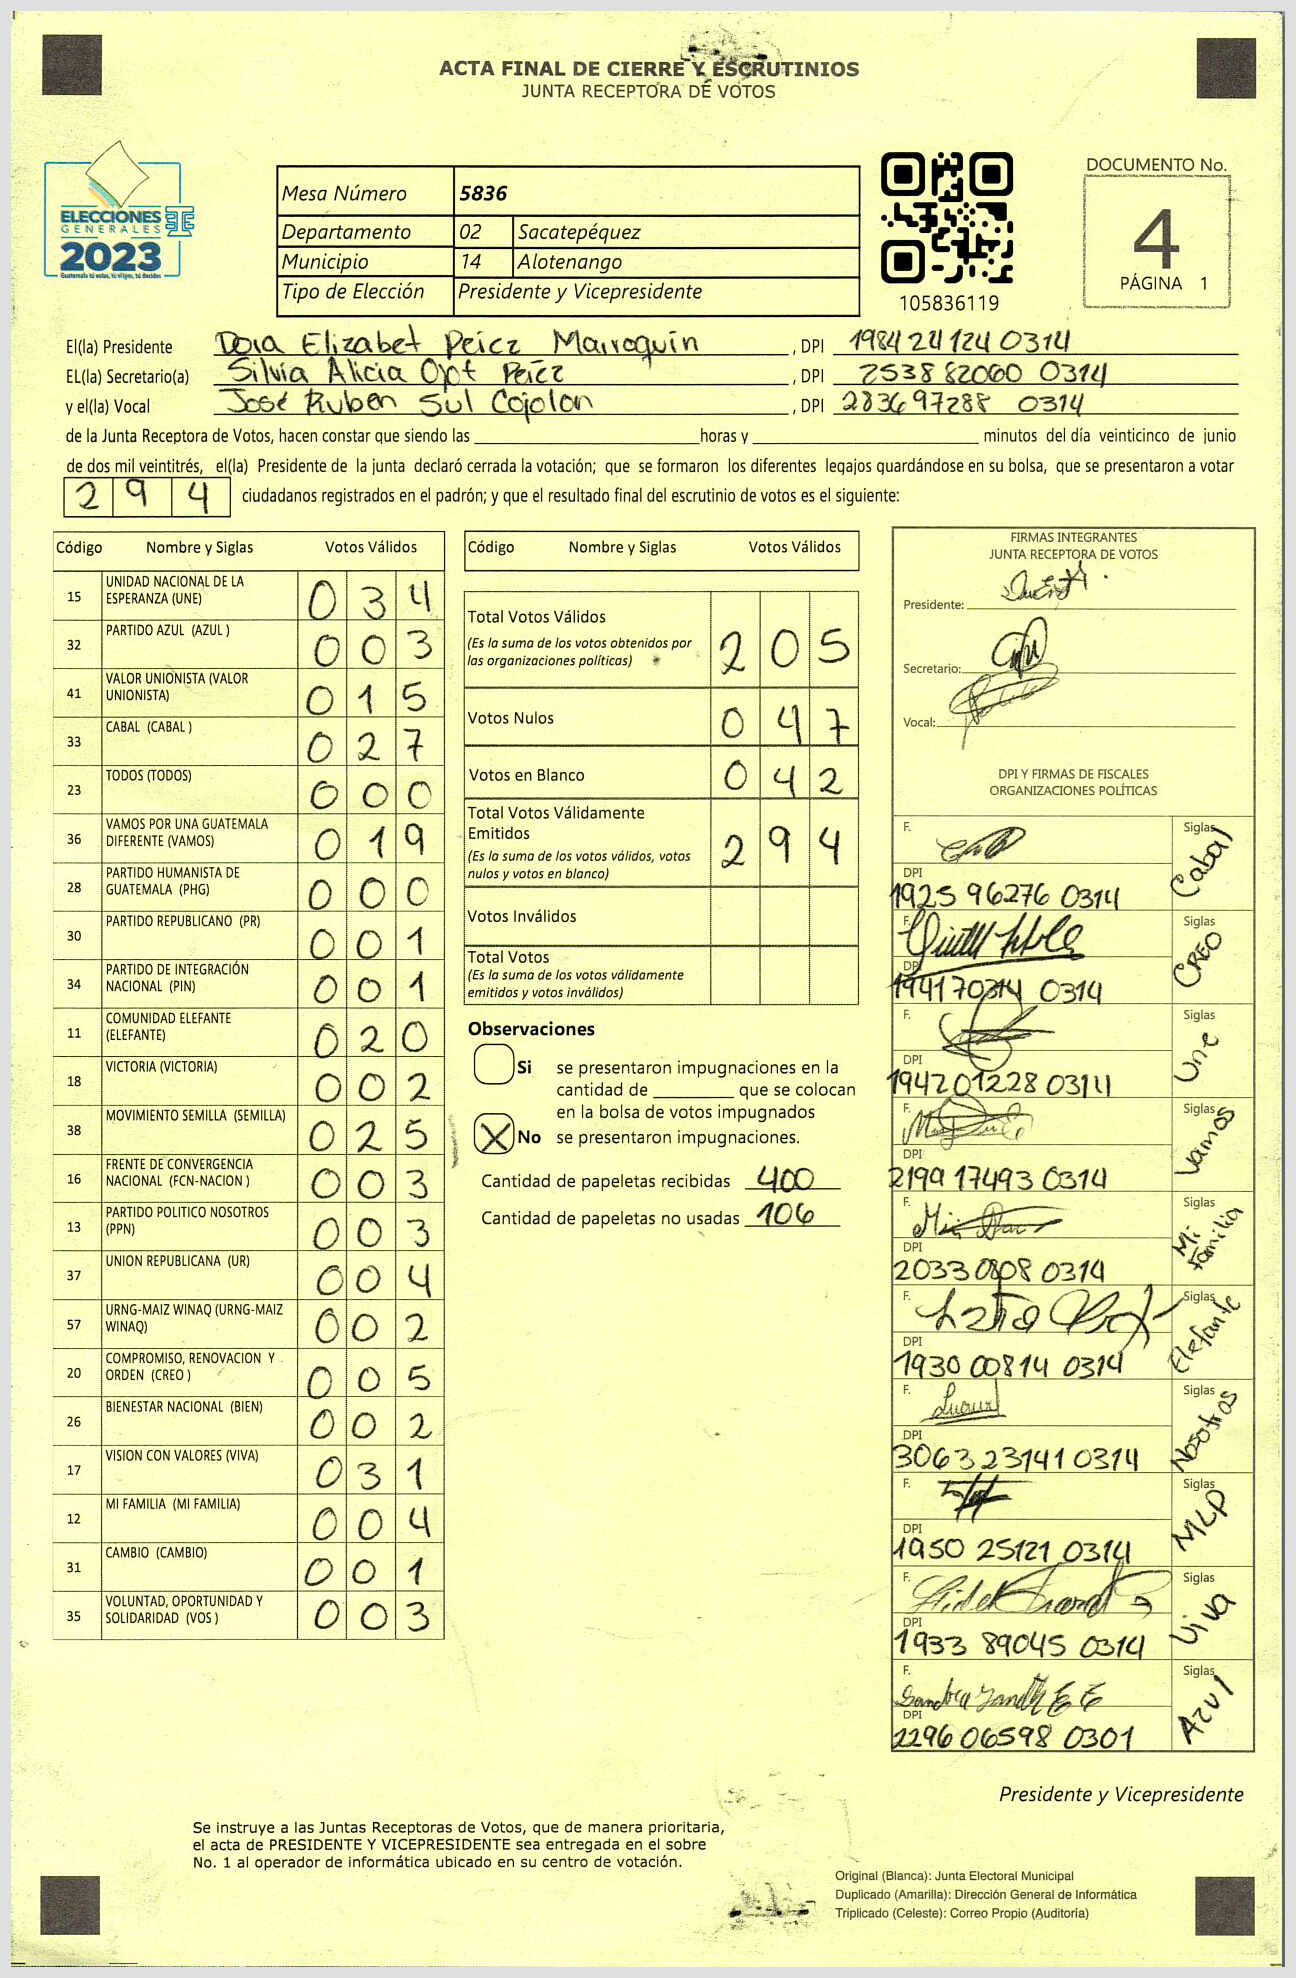 ACTA FINAL DE CIERRE Y ESCRUTINIOS
JUNTA RECEPTORA DE VOTOS
ELECCIONES
GENERALES
2023
Guatemala tú votas, tú eliges, tú decides
Mesa Número 5836
Departamento 02 Sacatepéquez
Municipio 14 Alotenango
Tipo de Elección Presidente y Vicepresidente
105836119
DOCUMENTO No.
4
PÁGINA 1
El(la) Presidente Dora Elizabet Peicz Marroquin , DPI 1984 24124 0314
EL(la) Secretario(a) Silvia Alicia Opt Peicz , DPI 2538 82060 0314
y el(la) Vocal José Ruben Sul Cojolon , DPI 2836 97288 0314
de la Junta Receptora de Votos, hacen constar que siendo las horas y minutos del día veinticinco de junio
de dos mil veintitrés, el(la) Presidente de la junta declaró cerrada la votación; que se formaron los diferentes legajos guardándose en su bolsa, que se presentaron a votar
294 ciudadanos registrados en el padrón; y que el resultado final del escrutinio de votos es el siguiente:
Código Nombre y Siglas Votos Válidos
15 UNIDAD NACIONAL DE LA ESPERANZA (UNE) 034
32 PARTIDO AZUL (AZUL ) 003
41 VALOR UNIONISTA (VALOR UNIONISTA) 015
33 CABAL (CABAL ) 027
23 TODOS (TODOS) 000
36 VAMOS POR UNA GUATEMALA DIFERENTE (VAMOS) 019
28 PARTIDO HUMANISTA DE GUATEMALA (PHG) 000
30 PARTIDO REPUBLICANO (PR) 001
34 PARTIDO DE INTEGRACIÓN NACIONAL (PIN) 001
11 COMUNIDAD ELEFANTE (ELEFANTE) 020
18 VICTORIA (VICTORIA) 002
38 MOVIMIENTO SEMILLA (SEMILLA) 025
16 FRENTE DE CONVERGENCIA NACIONAL (FCN-NACION ) 003
13 PARTIDO POLITICO NOSOTROS (PPN) 003
37 UNION REPUBLICANA (UR) 004
57 URNG-MAIZ WINAQ (URNG-MAIZ WINAQ) 002
20 COMPROMISO, RENOVACION Y ORDEN (CREO ) 005
26 BIENESTAR NACIONAL (BIEN) 002
17 VISION CON VALORES (VIVA) 031
12 MI FAMILIA (MI FAMILIA) 004
31 CAMBIO (CAMBIO) 001
35 VOLUNTAD, OPORTUNIDAD Y SOLIDARIDAD (VOS ) 003
Código Nombre y Siglas Votos Válidos
Total Votos Válidos 205
(Es la suma de los votos obtenidos por
las organizaciones políticas)
Votos Nulos 047
Votos en Blanco 042
Total Votos Válidamente
Emitidos 294
(Es la suma de los votos válidos, votos
nulos y votos en blanco)
Votos Inválidos
Total Votos
(Es la suma de los votos válidamente
emitidos y votos inválidos)
Observaciones
Si se presentaron impugnaciones en la
cantidad de que se colocan
en la bolsa de votos impugnados
X No se presentaron impugnaciones.
Cantidad de papeletas recibidas 400
Cantidad de papeletas no usadas 106
FIRMAS INTEGRANTES
JUNTA RECEPTORA DE VOTOS
Presidente:
Secretario:
Vocal:
DPI Y FIRMAS DE FISCALES
ORGANIZACIONES POLÍTICAS
F. Siglas Cabal
DPI
1925 96276 0314
F. Siglas CREO
DPI
1941 70314 0314
F. Siglas Une
DPI
1942 01228 0314
F. Siglas Vamos
DPI
2199 17493 0314
F. Siglas Mi Familia
DPI
2033 0808 0314
F. Siglas Elefante
DPI
1930 00814 0314
F. Siglas Nosotros
DPI
3063 23141 0314
F. Siglas MLP
DPI
1950 25121 0314
F. Siglas Viva
DPI
1933 89045 0314
F. Sandra Siglas Azul
DPI
2296 06598 0301
Presidente y Vicepresidente
Se instruye a las Juntas Receptoras de Votos, que de manera prioritaria,
el acta de PRESIDENTE Y VICEPRESIDENTE sea entregada en el sobre
No. 1 al operador de informática ubicado en su centro de votación.
Original (Blanca): Junta Electoral Municipal
Duplicado (Amarilla): Dirección General de Informática
Triplicado (Celeste): Correo Propio (Auditoría)